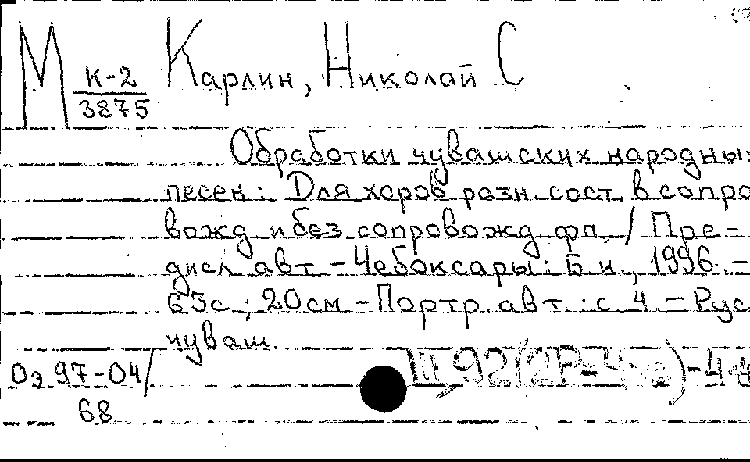 М К-2 Карлин, Николай С
3875
Обработки чувашских народны
песен: Для хоров разн. сост. в сопро
вожд и без сопровожд фп. / Пре-
дисл авт - Чебоксары: Б.и., 1996. -
63с.; 20см - Портр. авт.: с. 4 - Рус
чуваш.
Оэ 97-04/
68